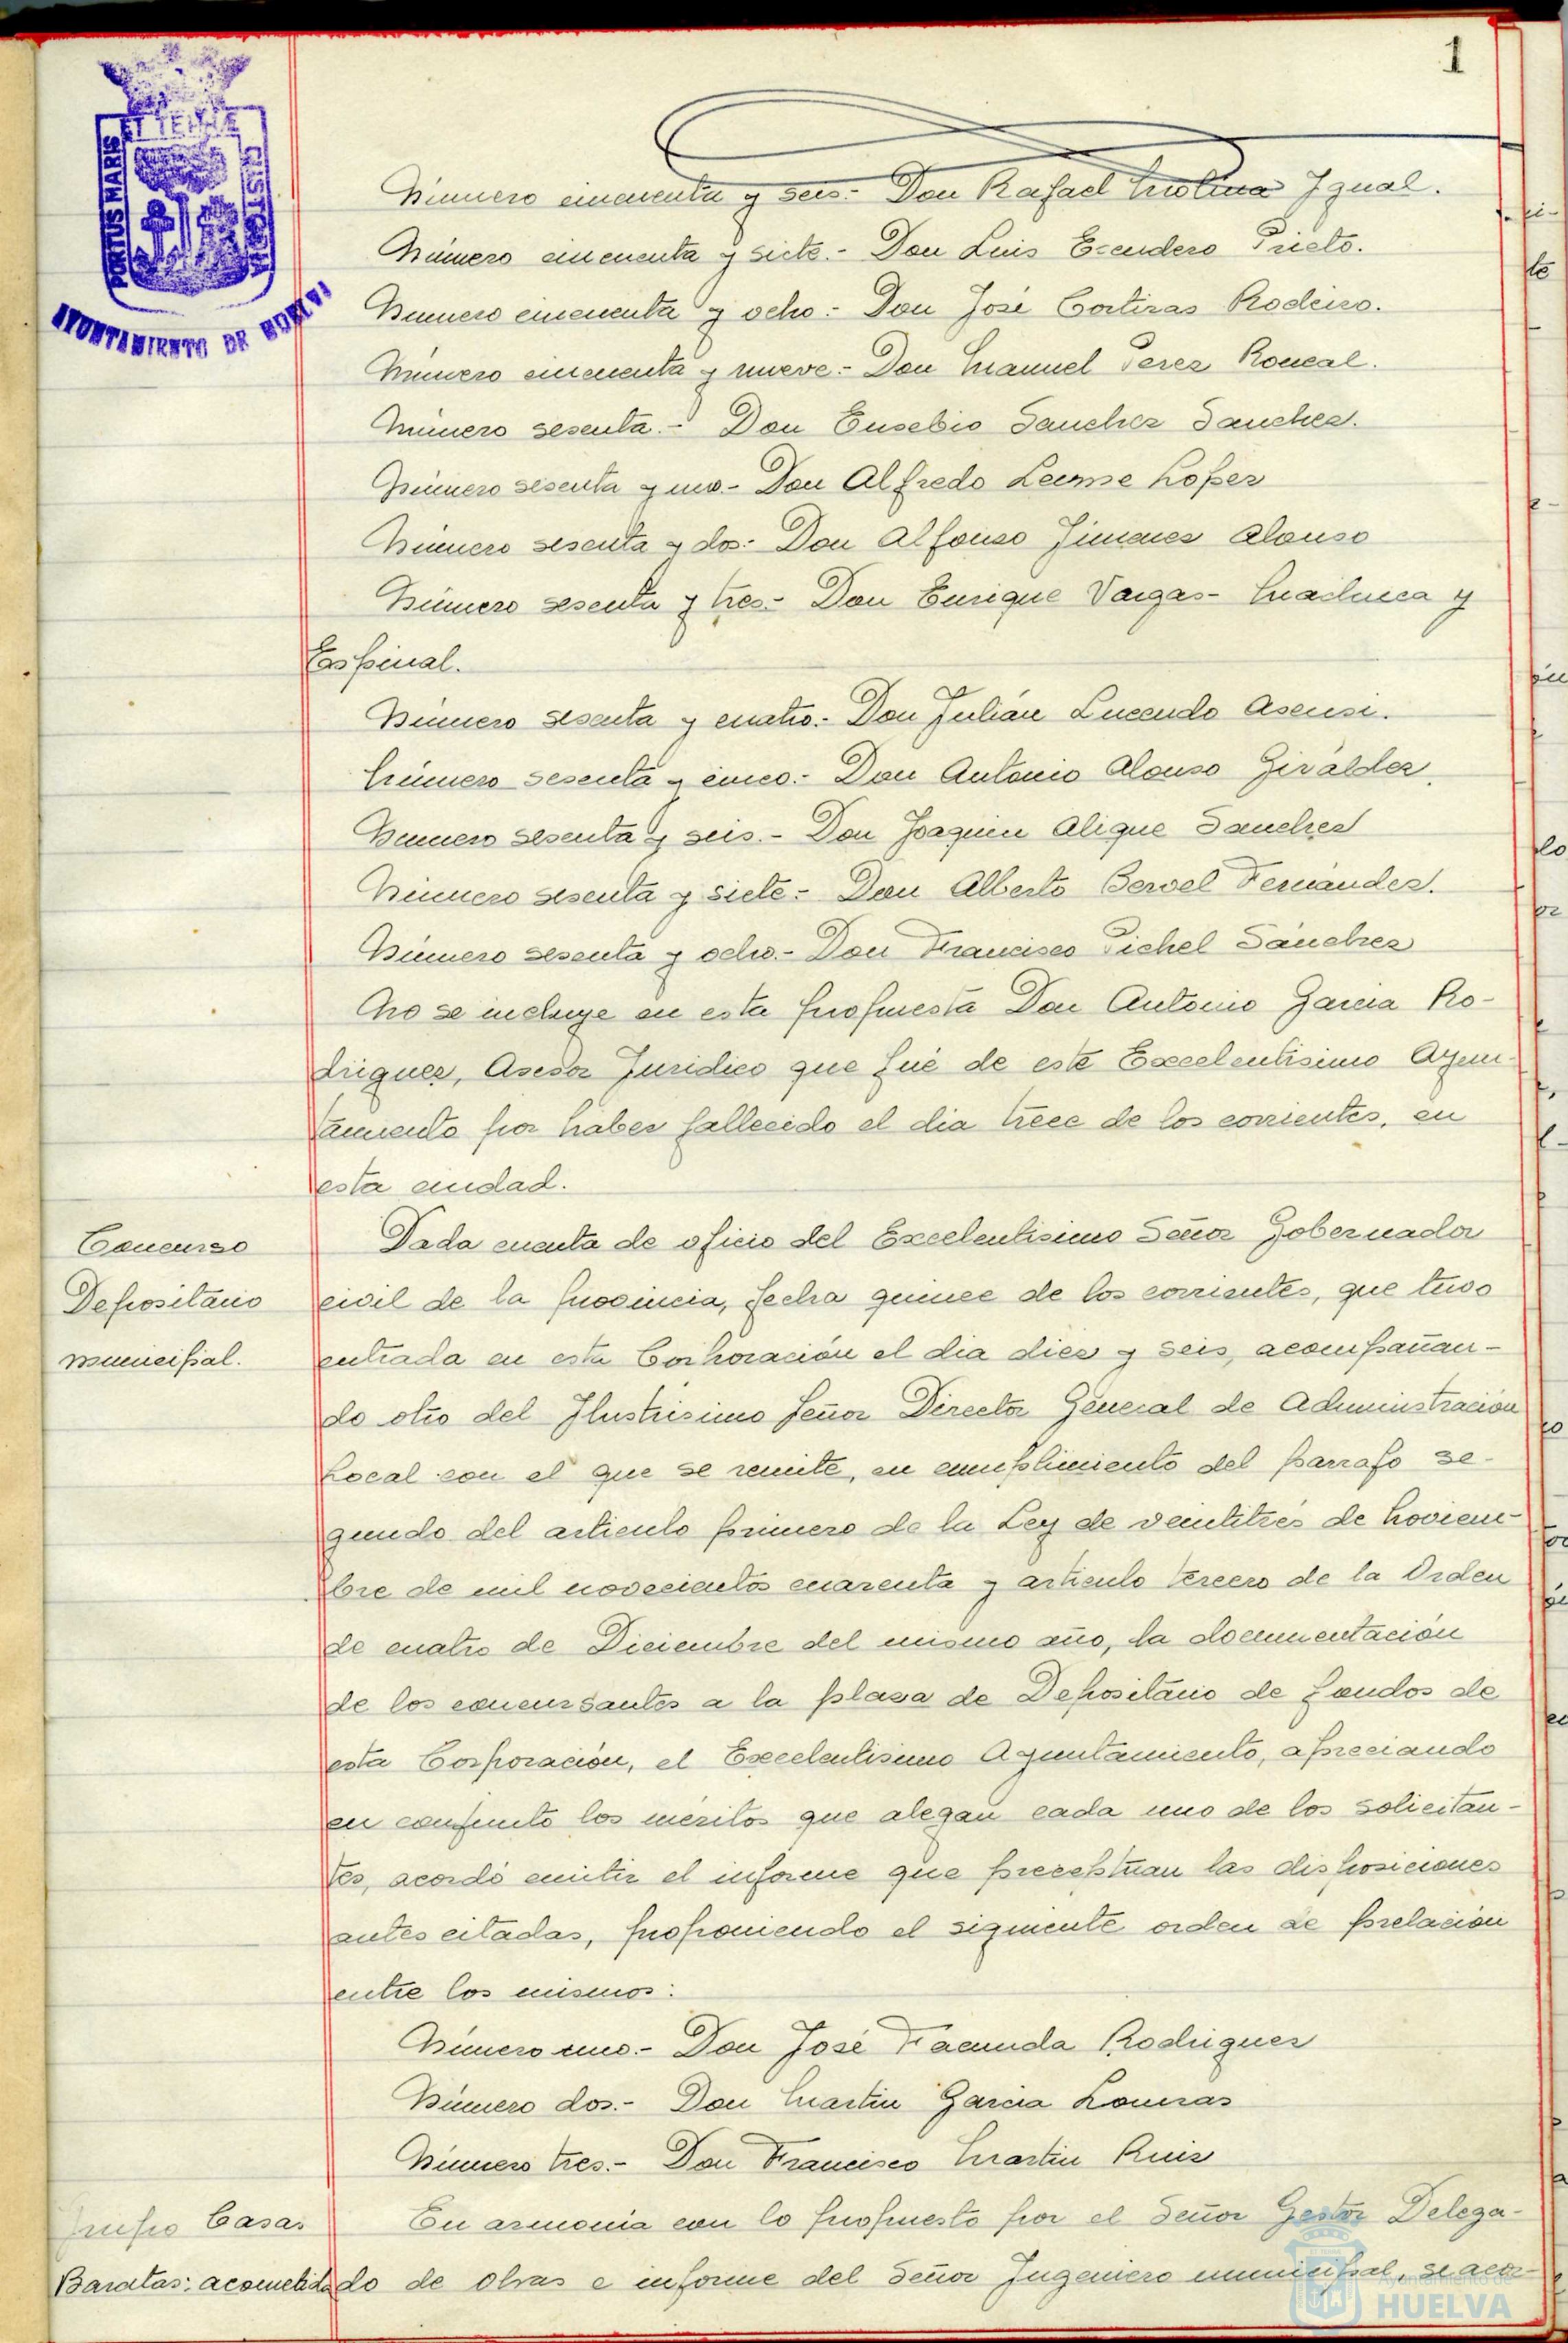 1
PORTUS MARIS ET TERRÆ CUSTODIA
AYUNTAMIENTO DE HUELVA
Número cincuenta y seis.- Don Rafael Molina Igual.
Número cincuenta y siete.- Don Luis Escudero Prieto.
Número cincuenta y ocho.- Don José Cortizas Rodeiro.
Número cincuenta y nueve.- Don Manuel Perez Roncal.
Número sesenta.- Don Eusebio Sanchez Sanchez.
Número sesenta y uno.- Don Alfredo Leeme Lopez
Número sesenta y dos.- Don Alfonso Jimenez Alonso
Número sesenta y tres.- Don Enrique Vargas-Machuca y
Espinal.
Número sesenta y cuatro.- Don Julián Lucendo Asensi.
Número sesenta y cinco.- Don Antonio Alonso Giráldez.
Número sesenta y seis.- Don Joaquin Alique Sanchez
Número sesenta y siete.- Don Alberto Bervel Fernández.
Número sesenta y ocho.- Don Francisco Pichel Sánchez
No se incluye en esta propuesta Don Antonio Garcia Ro-
driguez, Asesor Juridico que fué de este Excelentisimo Ayun-
tamiento por haber fallecido el dia trece de los corrientes, en
esta ciudad.
Concurso
Depositario
municipal.
Dada cuenta de oficio del Excelentisimo Señor Gobernador
civil de la provincia, fecha quince de los corrientes, que tuvo
entrada en esta Corporación el dia diez y seis, acompañan-
do otro del Ilustrisimo Señor Director General de Administración
Local con el que se remite, en cumplimiento del parrafo se-
gundo del articulo primero de la Ley de veintitrés de Noviem-
bre de mil novecientos cuarenta y articulo tercero de la Orden
de cuatro de Diciembre del mismo año, la documentación
de los concursantes a la plaza de Depositario de fondos de
esta Corporación, el Excelentisimo Ayuntamiento, apreciando
en conjunto los méritos que alegan cada uno de los solicitan-
tes, acordó emitir el informe que preceptúan las disposiciones
antes citadas, proponiendo el siguiente orden de prelación
entre los mismos:
Número uno.- Don José Facunda Rodriguez
Número dos.- Don Martin Garcia Lomas
Número tres.- Don Francisco Martin Ruiz
Grupo Casas
Baratas: acometida
En armonia con lo propuesto por el Señor Gestor Delega-
do de Obras e informe del Señor Ingeniero municipal, se acor-
Ayuntamiento de
HUELVA